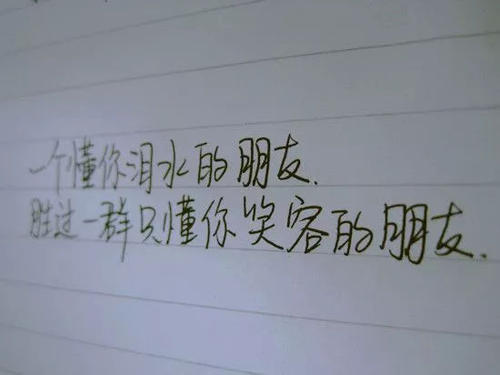 一个懂你泪水的朋友.
胜过一群只懂你笑容的朋友.